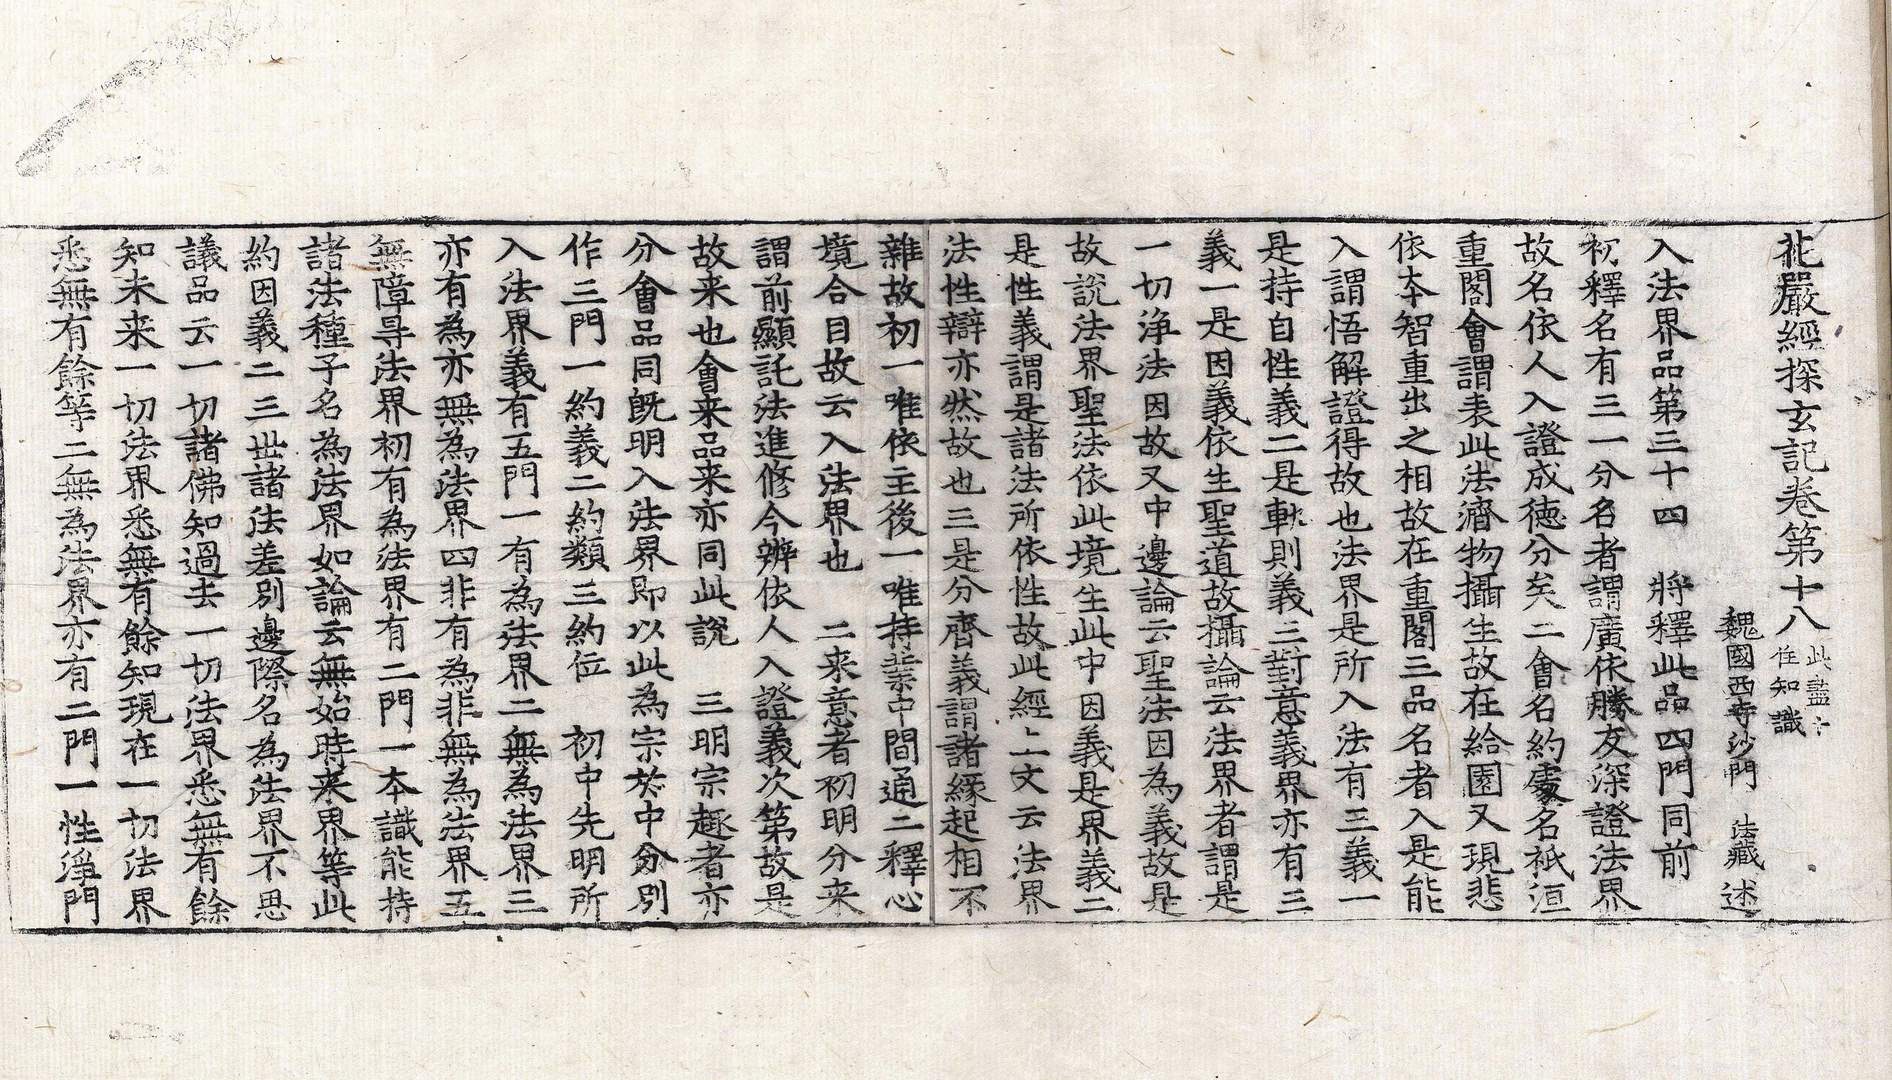 花嚴經探玄記卷第十八 此盡十住知識
魏國西寺沙門 法藏 述
入法界品第三十四 將釋此品四門同前
初釋名有三一分名者謂廣依勝友深證法界
故名依人入證成德分矣二會名約處名祇洹
重閣會謂表此法濟物攝生故在給園又現悲
依本智重出之相故在重閣三品名者入是能
入謂悟解證得故也法界是所入法有三義一
是持自性義二是軌則義三對意義界亦有三
義一是因義依生聖道故攝論云法界者謂是
一切淨法因故又中邊論云聖法因為義故是
故說法界聖法依此境生此中因義是界義二
是性義謂是諸法所依性故此經上文云法界
法性辯亦然故也三是分齊義謂諸緣起相不
雜故初一唯依主後一唯持業中間通二釋心
境合目故云入法界也 二來意者初明分來
謂前顯託法進修今辨依人入證義次第故是
故来也會来品来亦同此說 三明宗趣者亦
分會品同既明入法界即以此為宗於中分別
作三門一約義二約類三約位 初中先明所
入法界義有五門一有為法界二無為法界三
亦有為亦無為法界四非有為非無為法界五
無障导法界初有為法界有二門一本識能持
諸法種子名為法界如論云無始時来界等此
約因義二三世諸法差別邊際名為法界不思
議品云一切諸佛知過去一切法界悉無有餘
知未来一切法界悉無有餘知現在一切法界
悉無有餘等二無為法界亦有二門一性淨門